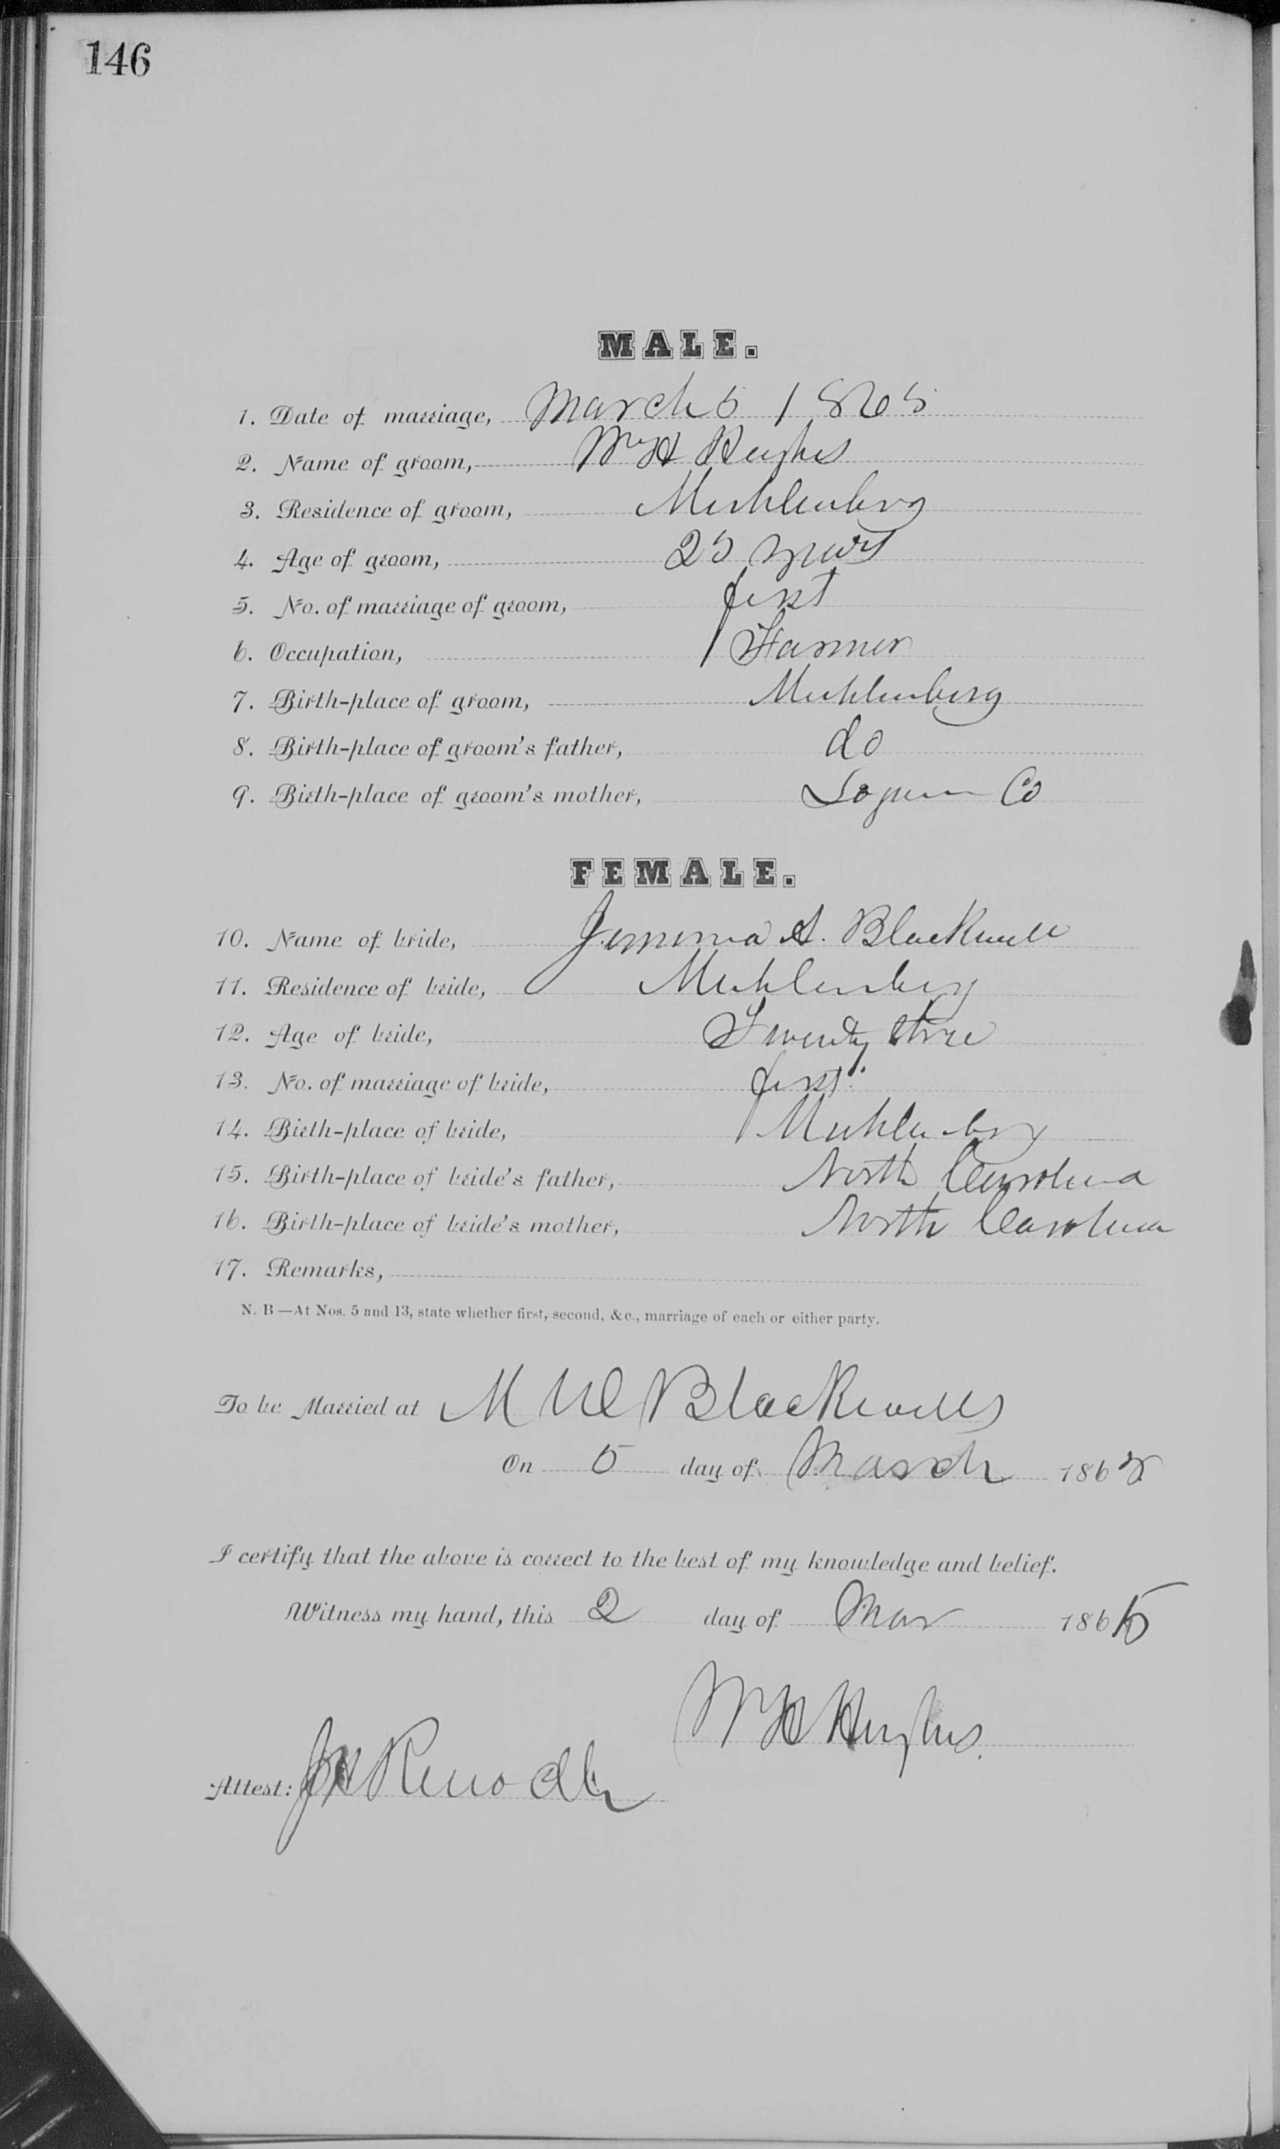 146
MALE.
1. Date of marriage, March 5 1865
2. Name of groom, Wm H Hughes
3. Residence of groom, Muhlenberg
4. Age of groom, 25 years
5. No. of marriage of groom, first
6. Occupation, Farmer
7. Birth-place of groom, Muhlenberg
8. Birth-place of groom's father, do
9. Birth-place of groom's mother, Logan Co
FEMALE.
10. Name of bride, Jemima A. Blackwell
11. Residence of bride, Muhlenberg
12. Age of bride, Twenty three
13. No. of marriage of bride, first
14. Birth-place of bride, Muhlenberg
15. Birth-place of bride's father, North Carolina
16. Birth-place of bride's mother, North Carolina
17. Remarks,
N. B—At Nos. 5 and 13, state whether first, second, &c., marriage of each or either party.
To be Married at M W Blackwells
On 5 day of March 1865
I certify that the above is correct to the best of my knowledge and belief.
Witness my hand, this 2 day of Mar 1865
Wm H Hughes.
Attest: Reno